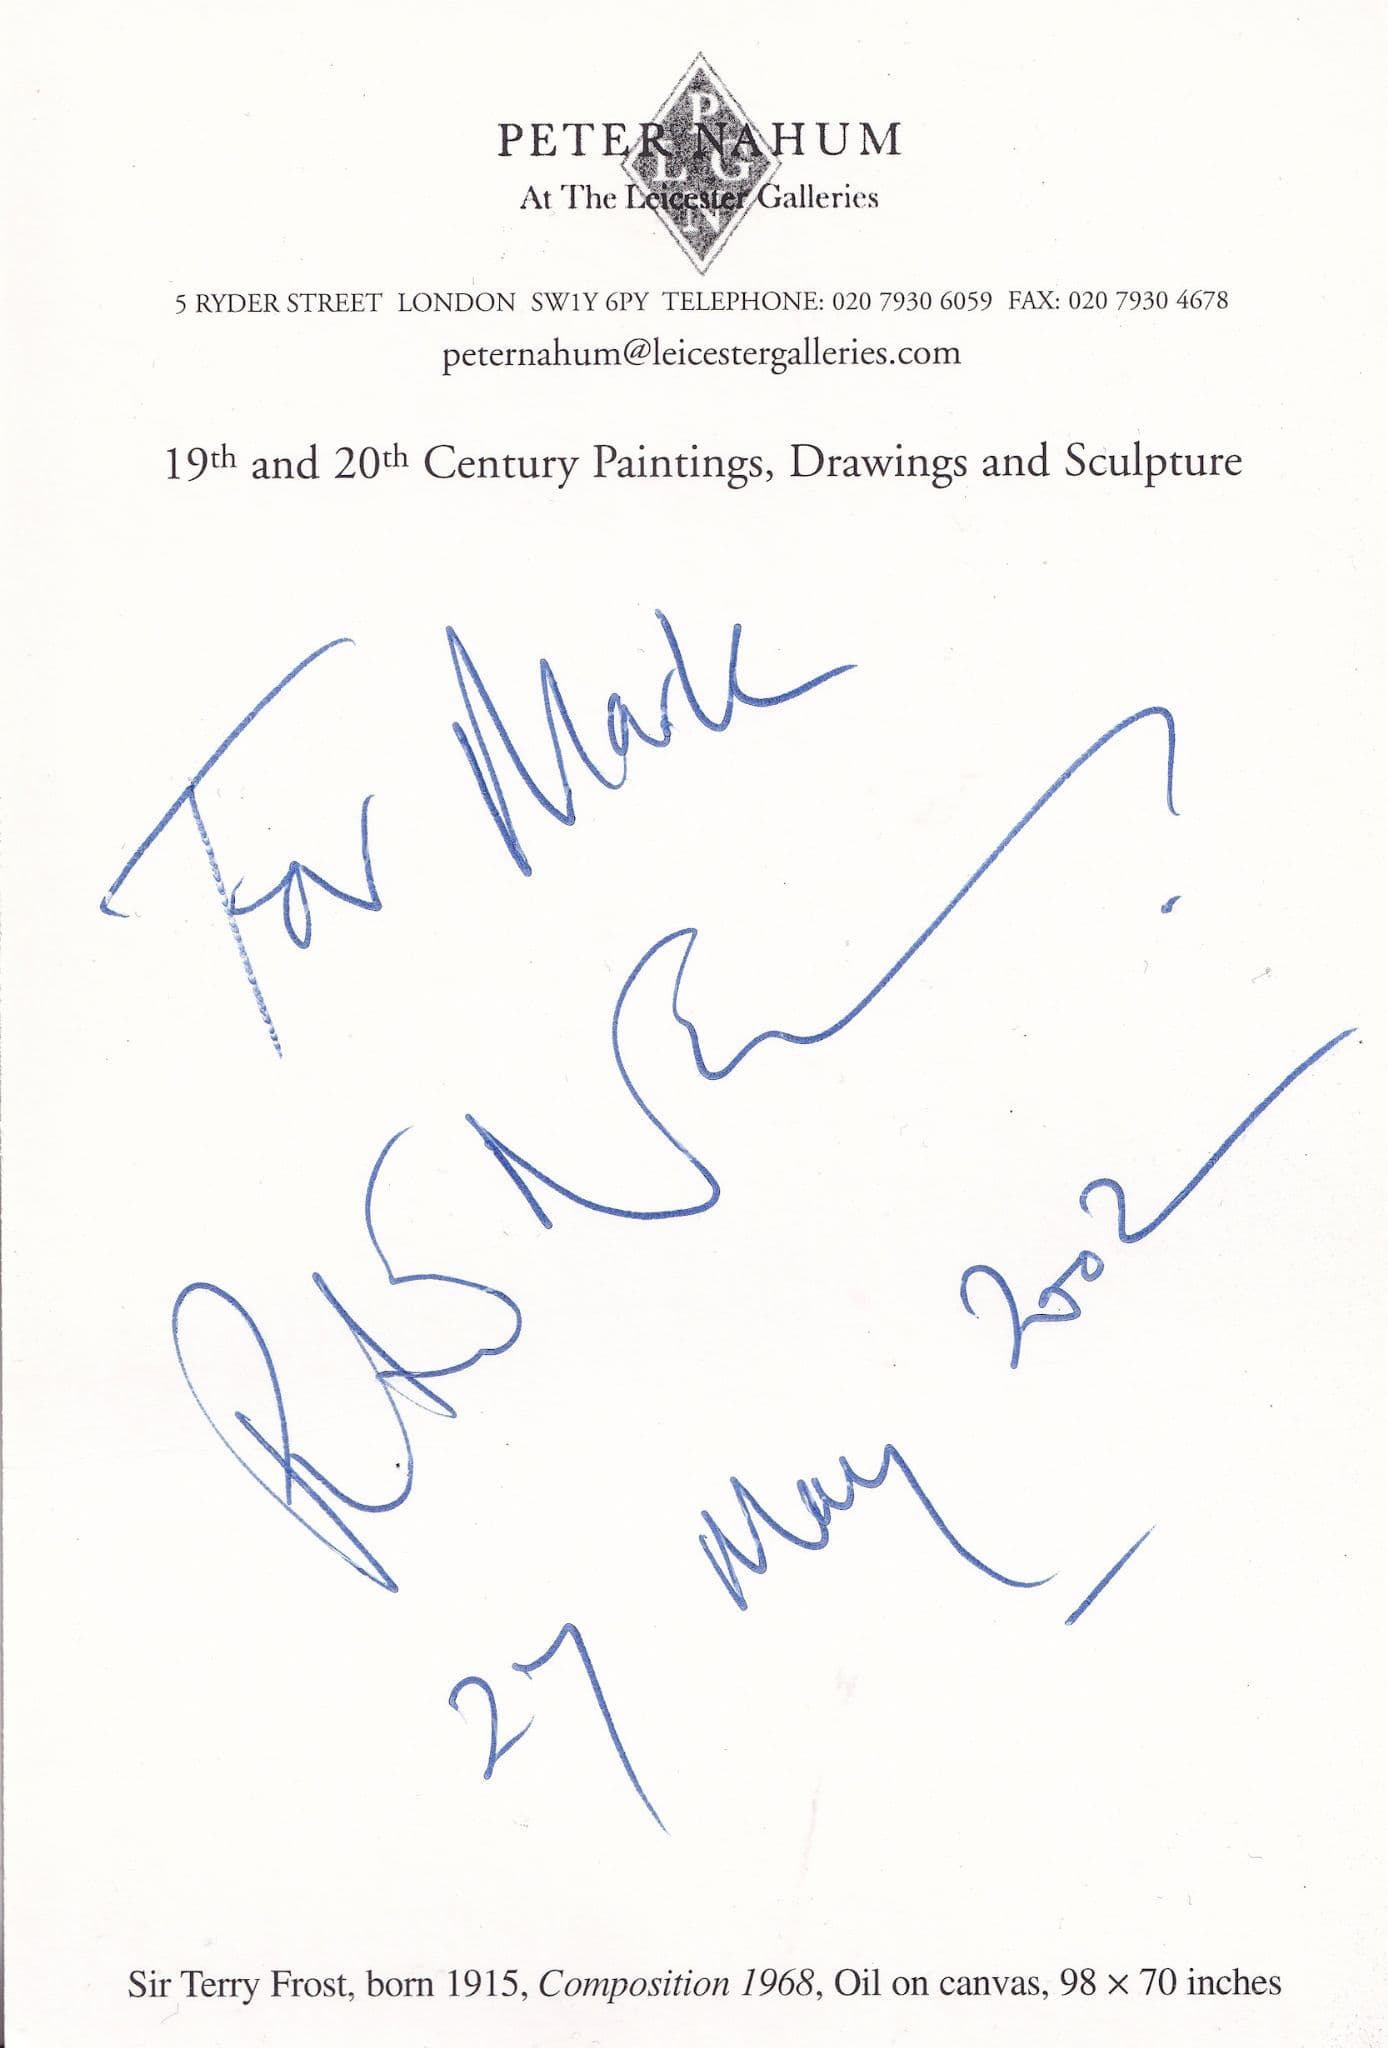 PETER NAHUM
At The Leicester Galleries
P
L G
N
5 RYDER STREET LONDON SW1Y 6PY TELEPHONE: 020 7930 6059 FAX: 020 7930 4678
peternahum@leicestergalleries.com
19th and 20th Century Paintings, Drawings and Sculpture
For Mark
27 May 2002
Sir Terry Frost, born 1915, Composition 1968, Oil on canvas, 98 × 70 inches